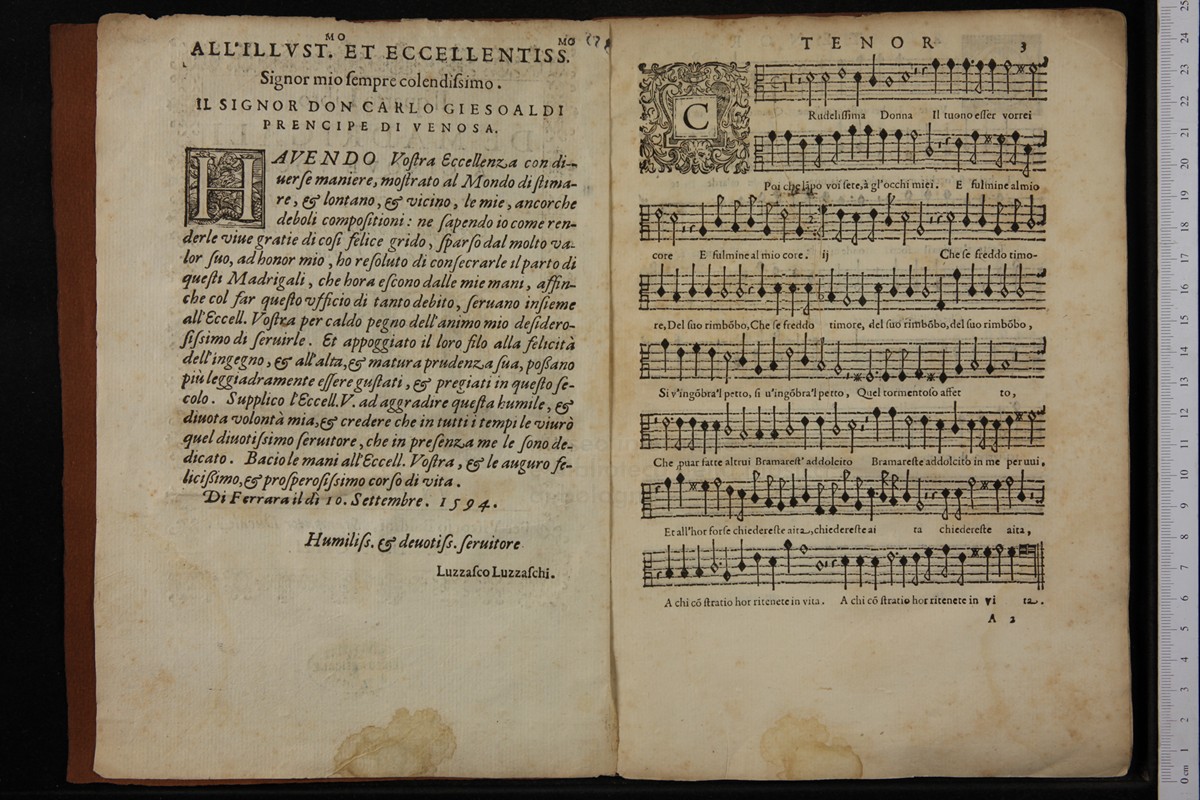 ALL'ILLVST.MO ET ECCELLENTISS.MO
Signor mio ſempre colendiſsimo.
IL SIGNOR DON CARLO GIESOALDI
PRENCIPE DI VENOSA.
HAVENDO Voſtra Eccellenza con di-
uerſe maniere, moſtrato al Mondo di ſtima-
re, & lontano, & vicino, le mie, ancorche
deboli compoſitioni: ne ſapendo io come ren-
derle viue gratie di coſi felice grido, ſparſo dal molto va-
lor ſuo, ad honor mio, ho reſoluto di conſecrarle il parto di
queſti Madrigali, che hora eſcono dalle mie mani, affin-
che col far queſto vfficio di tanto debito, ſeruano inſieme
all'Eccell. Voſtra per caldo pegno dell'animo mio deſidero-
ſiſsimo di ſeruirle. Et appoggiato il loro filo alla felicità
dell'ingegno, & all'alta, & matura prudenza ſua, poſsano
più leggiadramente eſſere guſtati, & pregiati in queſto ſe-
colo. Supplico l'Eccell. V. ad aggradire queſta humile, &
diuota volontà mia, & credere che in tutti i tempi le viurò
quel diuotiſsimo ſeruitore, che in preſenza me le ſono de-
dicato. Bacio le mani all'Eccell. Voſtra, & le auguro fe-
liciſsimo, & proſperoſiſsimo corſo di vita.
Di Ferrara il dì 10. Settembre. 1594.
Humiliſs. & deuotiſs. ſeruitore
Luzzaſco Luzzaſchi.
TENOR 3
CRudeliſſima Donna Il tuono eſſer vorrei
Poi che lāpo voi ſete, à gl'occhi miei. E fulmine al mio
core E fulmine al mio core. ij Che ſe freddo timo-
re, Del ſuo rimbōbo, Che ſe freddo timore, del ſuo rimbōbo, del ſuo rimbōbo,
Si v'ingōbra'l petto, ſi u'ingōbra'l petto, Quel tormentoſo affet to,
Che puar fatte altrui Bramareſt' addolcito Bramareſte addolcito in me per uui,
Et all'hor forſe chiedereſte aita, chiedereſte ai ta chiedereſte aita,
A chi cō ſtratio hor ritenete in vita. A chi cō ſtratio hor ritenete in vi ta.
A 2
25
24
23
22
21
20
19
18
17
16
15
14
13
12
11
10
9
8
7
6
5
4
3
2
1
0 cm